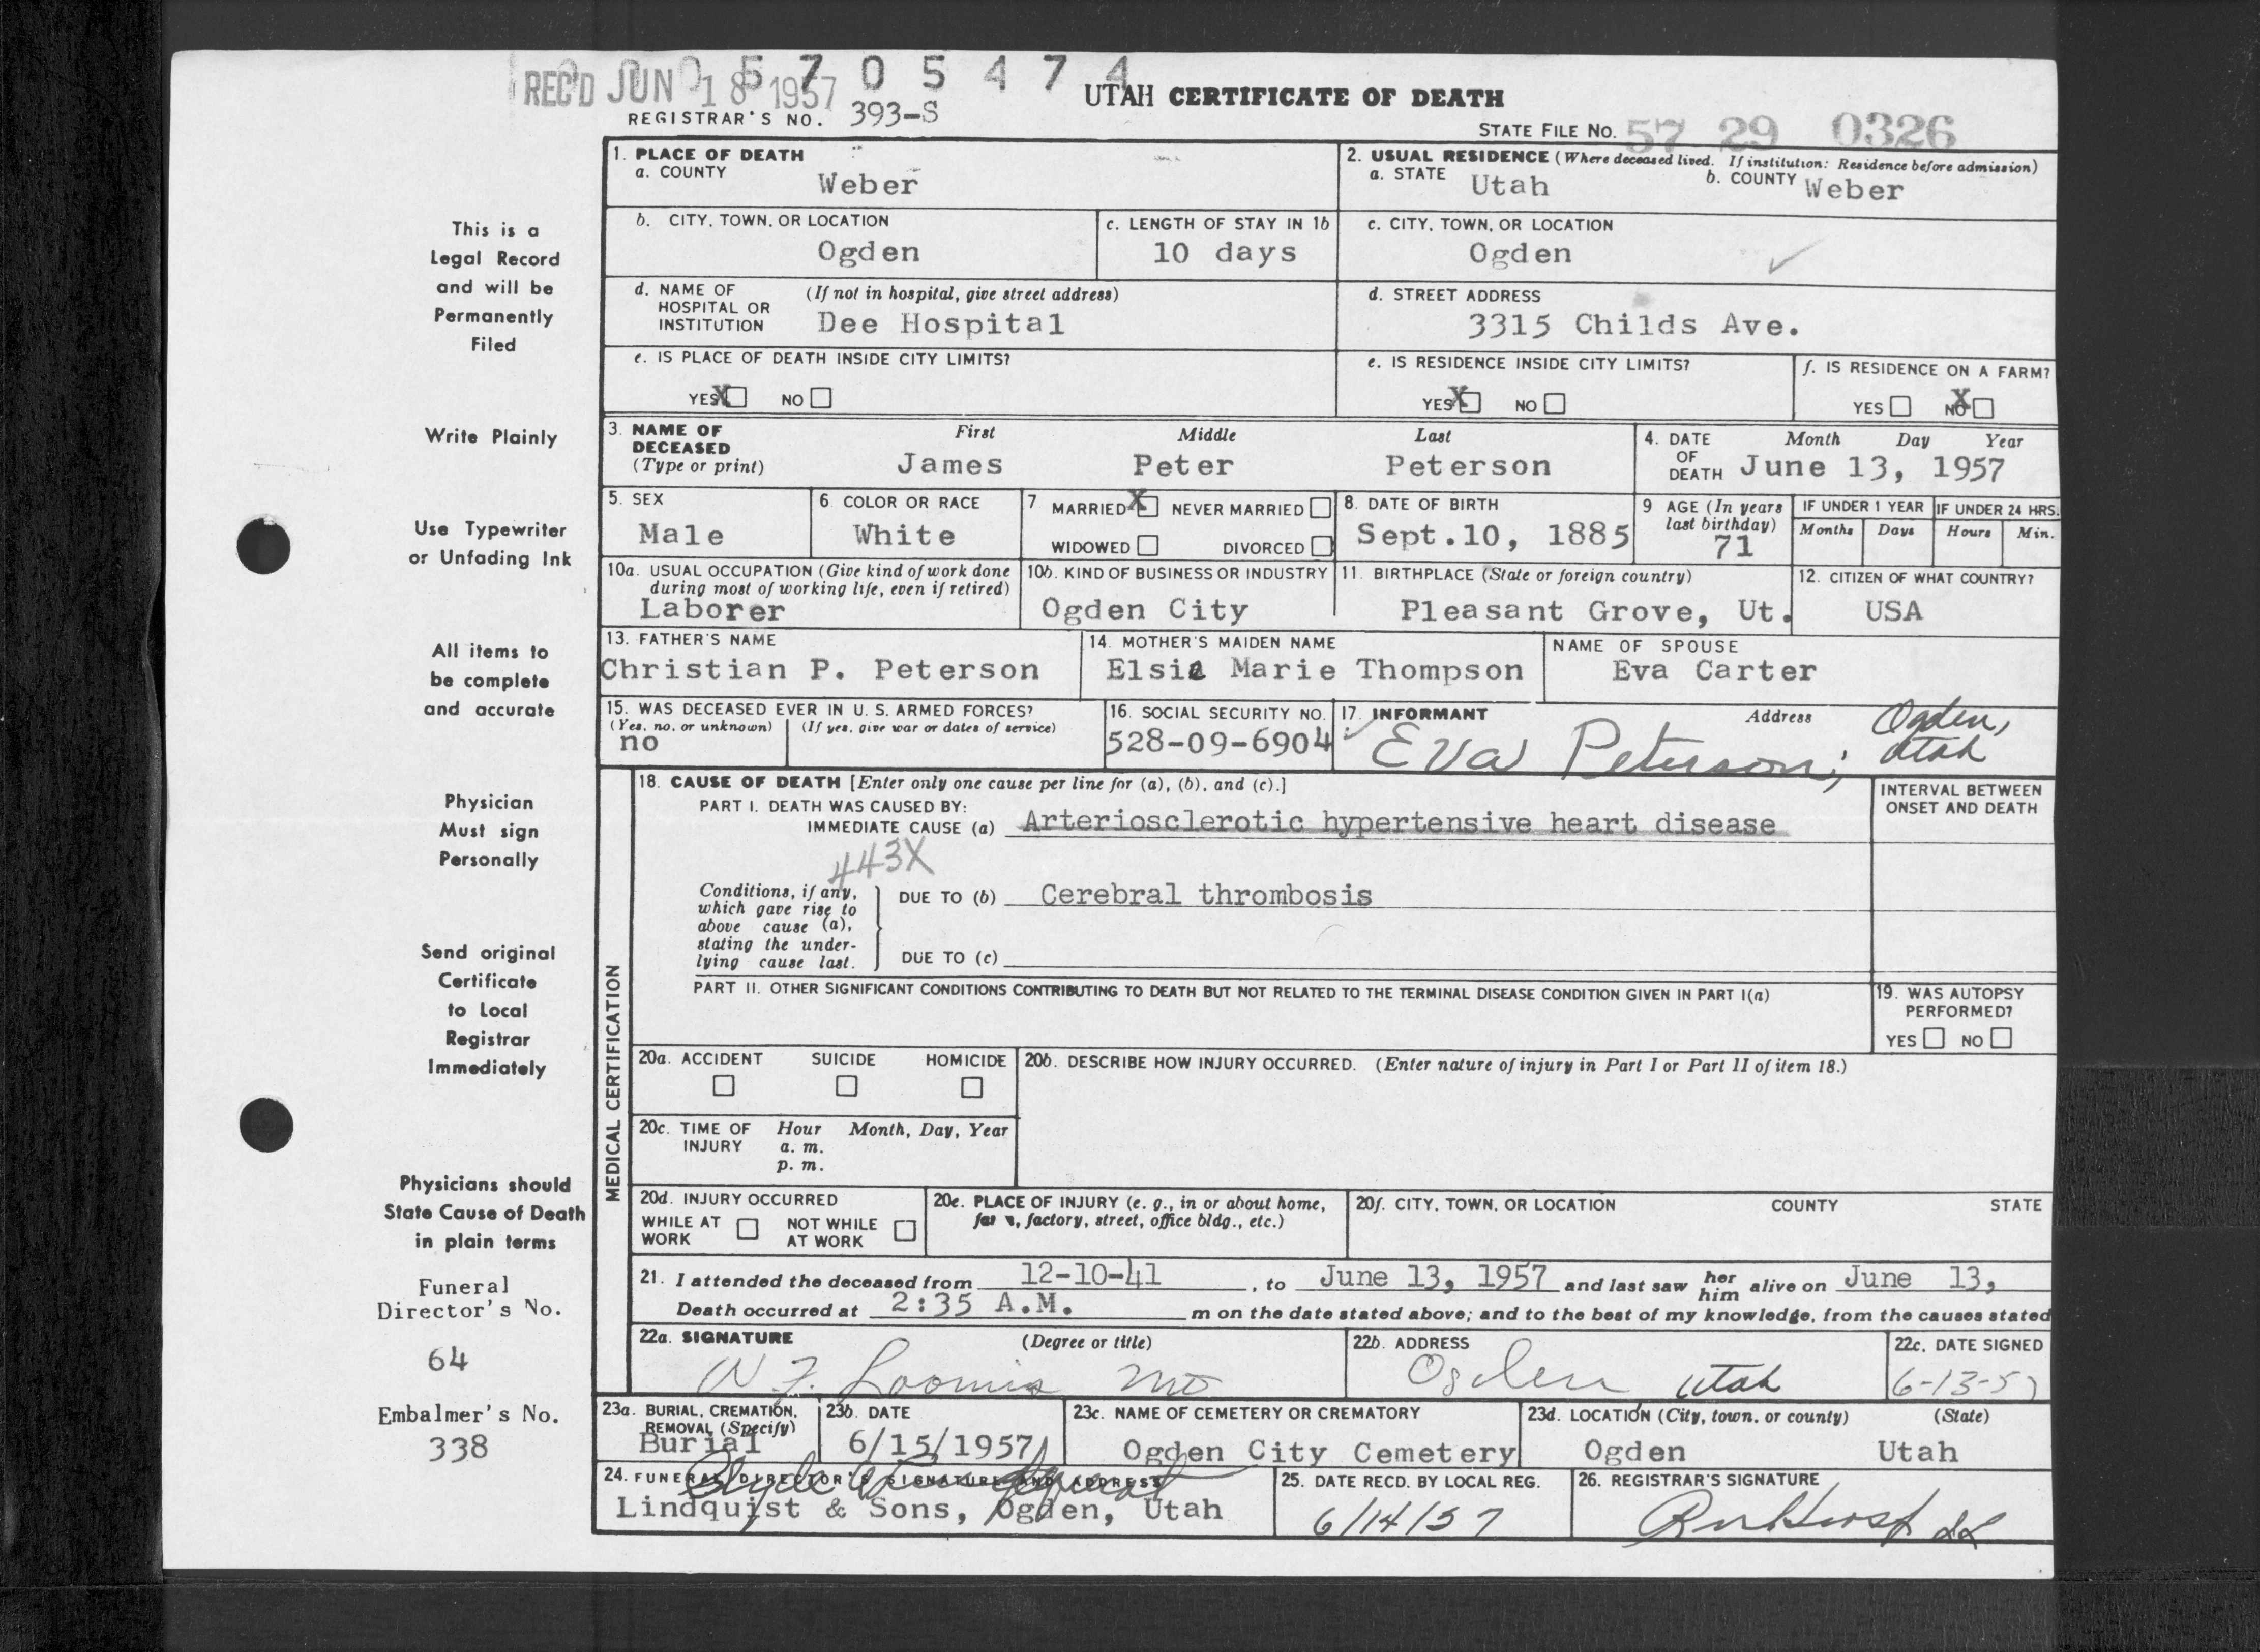 0 0 5 7 0 5 4 7 4
REC'D JUN 18 1957
UTAH CERTIFICATE OF DEATH
REGISTRAR'S NO. 393-S
STATE FILE NO. 57 29 0326
1. PLACE OF DEATH
a. COUNTY
Weber
2. USUAL RESIDENCE (Where deceased lived. If institution: Residence before admission)
a. STATE Utah b. COUNTY Weber
b. CITY, TOWN, OR LOCATION
Ogden
c. LENGTH OF STAY IN 1b
10 days
c. CITY, TOWN, OR LOCATION
Ogden
d. NAME OF HOSPITAL OR INSTITUTION
(If not in hospital, give street address)
Dee Hospital
d. STREET ADDRESS
3315 Childs Ave.
e. IS PLACE OF DEATH INSIDE CITY LIMITS?
YES X NO
e. IS RESIDENCE INSIDE CITY LIMITS?
YES X NO
f. IS RESIDENCE ON A FARM?
YES NO X
3. NAME OF DECEASED (Type or print)
First Middle Last
James Peter Peterson
4. DATE OF DEATH
Month Day Year
June 13, 1957
5. SEX
Male
6. COLOR OR RACE
White
7 MARRIED X NEVER MARRIED
WIDOWED DIVORCED
8. DATE OF BIRTH
Sept.10, 1885
9 AGE (In years last birthday)
71
IF UNDER 1 YEAR
Months Days
IF UNDER 24 HRS.
Hours Min.
10a. USUAL OCCUPATION (Give kind of work done during most of working life, even if retired)
Laborer
10b. KIND OF BUSINESS OR INDUSTRY
Ogden City
11. BIRTHPLACE (State or foreign country)
Pleasant Grove, Ut.
12. CITIZEN OF WHAT COUNTRY?
USA
13. FATHER'S NAME
Christian P. Peterson
14. MOTHER'S MAIDEN NAME
Elsie Marie Thompson
NAME OF SPOUSE
Eva Carter
15. WAS DECEASED EVER IN U. S. ARMED FORCES?
(Yes, no, or unknown) (If yes, give war or dates of service)
no
16. SOCIAL SECURITY NO.
528-09-6904
17. INFORMANT Address
Eva Peterson; Ogden, Utah
MEDICAL CERTIFICATION
18. CAUSE OF DEATH [Enter only one cause per line for (a), (b), and (c).]
PART I. DEATH WAS CAUSED BY:
IMMEDIATE CAUSE (a) Arteriosclerotic hypertensive heart disease
INTERVAL BETWEEN ONSET AND DEATH
443X
Conditions, if any, which gave rise to above cause (a), stating the underlying cause last.
DUE TO (b) Cerebral thrombosis
DUE TO (c)
PART II. OTHER SIGNIFICANT CONDITIONS CONTRIBUTING TO DEATH BUT NOT RELATED TO THE TERMINAL DISEASE CONDITION GIVEN IN PART I(a)
19. WAS AUTOPSY PERFORMED?
YES NO
20a. ACCIDENT SUICIDE HOMICIDE
20b. DESCRIBE HOW INJURY OCCURRED. (Enter nature of injury in Part I or Part II of item 18.)
20c. TIME OF INJURY
Hour Month, Day, Year
a. m.
p. m.
20d. INJURY OCCURRED
WHILE AT WORK NOT WHILE AT WORK
20e. PLACE OF INJURY (e. g., in or about home, farm, factory, street, office bldg., etc.)
20f. CITY, TOWN, OR LOCATION COUNTY STATE
21. I attended the deceased from 12-10-41, to June 13, 1957 and last saw her him alive on June 13,
Death occurred at 2:35 A.M. m on the date stated above; and to the best of my knowledge, from the causes stated
22a. SIGNATURE (Degree or title)
Loomis MD
22b. ADDRESS
Ogden Utah
22c. DATE SIGNED
6-13-57
23a. BURIAL, CREMATION, REMOVAL (Specify)
Burial
23b. DATE
6/15/1957
23c. NAME OF CEMETERY OR CREMATORY
Ogden City Cemetery
23d. LOCATION (City, town, or county) (State)
Ogden Utah
24. FUNERAL DIRECTOR'S SIGNATURE AND ADDRESS
Lindquist & Sons, Ogden, Utah
25. DATE RECD. BY LOCAL REG.
6/14/57
26. REGISTRAR'S SIGNATURE
This is a
Legal Record
and will be
Permanently
Filed
Write Plainly
Use Typewriter
or Unfading Ink
All items to
be complete
and accurate
Physician
Must sign
Personally
Send original
Certificate
to Local
Registrar
Immediately
Physicians should
State Cause of Death
in plain terms
Funeral
Director's No.
64
Embalmer's No.
338